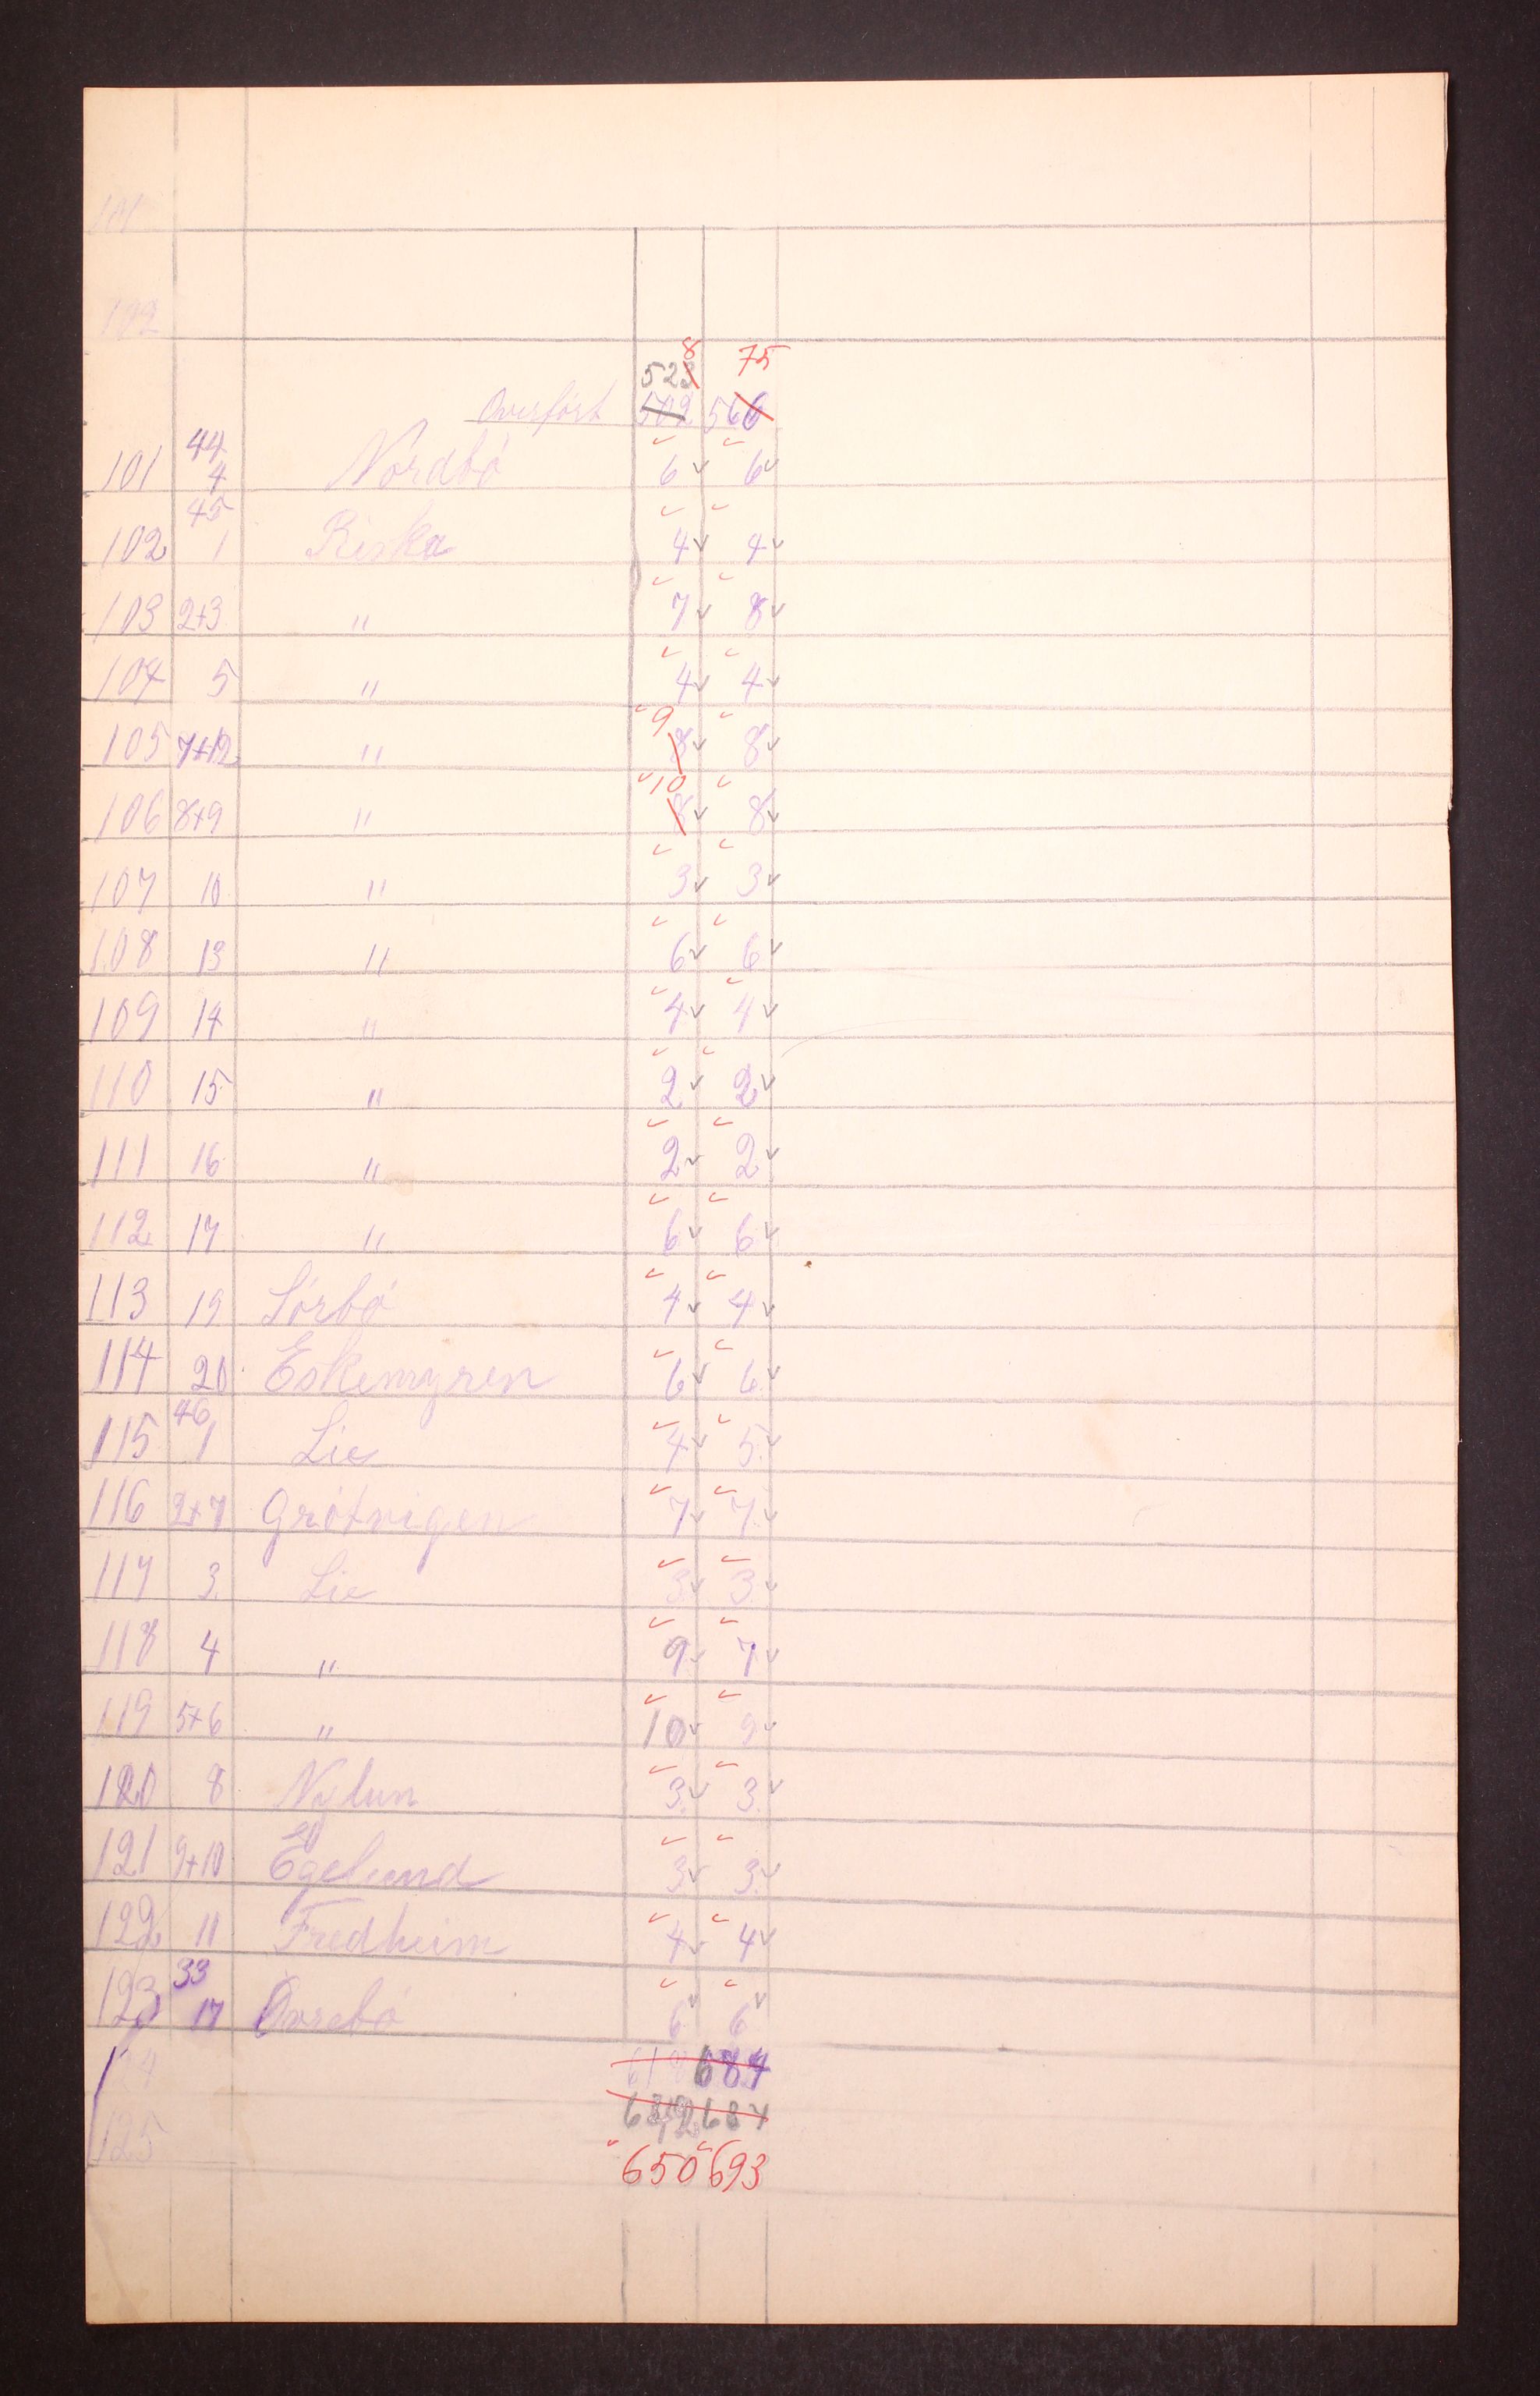 101
102
8 75
523
Overført 502 566
44
101 4 Nordbö 6 6
45
102 1 Riska 4 4
103 2+3 " 7 8
104 5 " 4 4
9
105 7+12 " 8 8
10
106 8+9 " 8 8
107 10 " 3 3
108 13 " 6 6
109 14 " 4 4
110 15 " 2 2
111 16 " 2 2
112 17 " 6 6
113 19 Sörbö 4 4
114 20 Eskemyren 6 6
46
115 1 Lie 4 5
116 2+7 Grötvigen 7 7
117 3 Lie 3 3
118 4 " 9 7
119 5+6 " 10 9
120 8 Nylun 3 3
121 9+10 Egelund 3 3
122 11 Fredheim 4 4
33
123 17 Övrebö 6 6
124 684
125 687
650 693